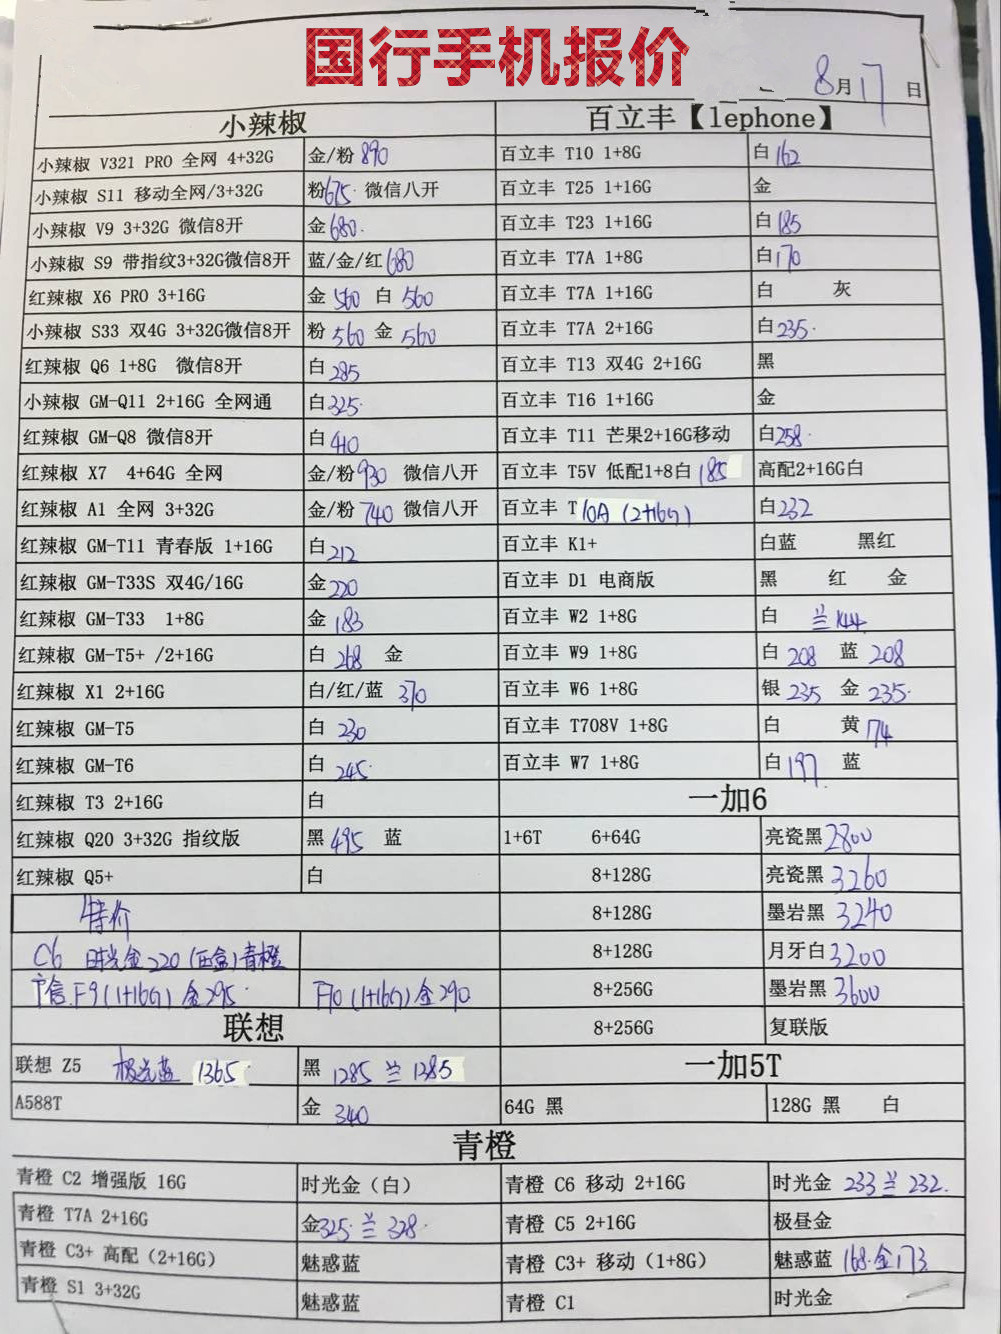 国行手机报价
8月17日
小辣椒 百立丰【lephone】
小辣椒 V321 PRO 全网 4+32G 金/粉 890 百立丰 T10 1+8G 白 162
小辣椒 S11 移动全网/3+32G 粉 675 微信八开 百立丰 T25 1+16G 金
小辣椒 V9 3+32G 微信8开 金 680 百立丰 T23 1+16G 白 185
小辣椒 S9 带指纹3+32G微信8开 蓝/金/红 680 百立丰 T7A 1+8G 白 170
红辣椒 X6 PRO 3+16G 金 560 白 560 百立丰 T7A 1+16G 白 灰
小辣椒 S33 双4G 3+32G微信8开 粉 560 金 560 百立丰 T7A 2+16G 白 235
红辣椒 Q6 1+8G 微信8开 白 285 百立丰 T13 双4G 2+16G 黑
小辣椒 GM-Q11 2+16G 全网通 白 325 百立丰 T16 1+16G 金
红辣椒 GM-Q8 微信8开 白 410 百立丰 T11 芒果2+16G移动 白 258
红辣椒 X7 4+64G 全网 金/粉 930 微信八开 百立丰 T5V 低配1+8白 185 高配2+16G白
红辣椒 A1 全网 3+32G 金/粉 740 微信八开 百立丰 T10A (2+16G) 白 232
红辣椒 GM-T11 青春版 1+16G 白 212 百立丰 K1+ 白蓝 黑红
红辣椒 GM-T33S 双4G/16G 金 220 百立丰 D1 电商版 黑 红 金
红辣椒 GM-T33 1+8G 金 183 百立丰 W2 1+8G 白 兰 144
红辣椒 GM-T5+ /2+16G 白 268 金 百立丰 W9 1+8G 白 208 蓝 208
红辣椒 X1 2+16G 白/红/蓝 370 百立丰 W6 1+8G 银 235 金 235
红辣椒 GM-T5 白 230 百立丰 T708V 1+8G 白 黄 174
红辣椒 GM-T6 白 245 百立丰 W7 1+8G 白 197 蓝
红辣椒 T3 2+16G 白 一加6
红辣椒 Q20 3+32G 指纹版 黑 495 蓝 1+6T 6+64G 亮瓷黑 2800
红辣椒 Q5+ 白 8+128G 亮瓷黑 3260
特价 8+128G 墨岩黑 3240
C6 时光金 220 (白盒)青橙 8+128G 月牙白 3200
F9 (1+16G) 金 295 F10 (1+16G) 金 290 8+256G 墨岩黑 3600
联想 8+256G 复联版
联想 Z5 极光蓝 1365 黑 1285 兰 1285 一加5T
A588T 金 340 64G 黑 128G 黑 白
青橙
青橙 C2 增强版 16G 时光金（白） 青橙 C6 移动 2+16G 时光金 233 兰 232.
青橙 T7A 2+16G 金 325 兰 328 青橙 C5 2+16G 极昼金
青橙 C3+ 高配（2+16G） 魅惑蓝 青橙 C3+ 移动（1+8G） 魅惑蓝 168 金 173
青橙 S1 3+32G 魅惑蓝 青橙 C1 时光金